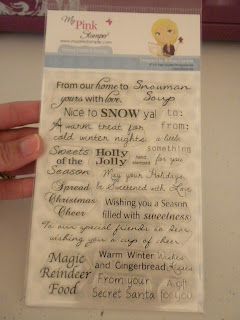 My Pink Stamper
From our home to
yours with love
Snowman
Soup
Nice to SNOW ya!
to:
from:
A warm treat for
cold winter nights
a little
something
for you
Sweets
of the
Season
Holly
Jolly
hand
stamped
May your Holidays
be Sweetened with Love
Spread
Christmas
Cheer
Wishing you a Season
filled with sweetness
To our special friends so dear,
wishing you a cup of cheer
Magic
Reindeer
Food
Warm Winter Wishes
and Gingerbread Kisses
From your
Secret Santa
A gift
for you